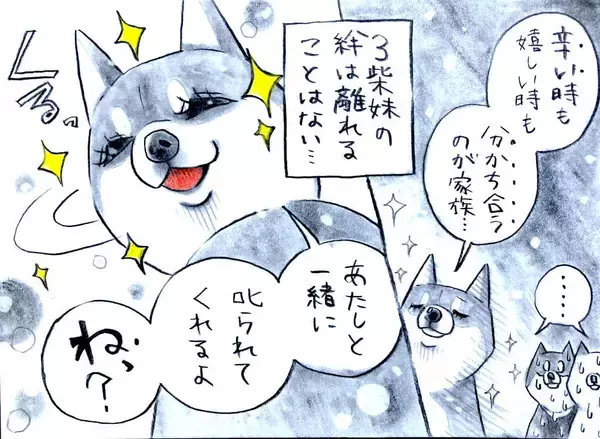 辛い時も
嬉しい時も
分かち合う
のが家族…
‥‥‥
3柴妹の
絆は離れる
ことはない…
くるっ
あたしと
一緒に
叱られて
くれるよ
ねっ?